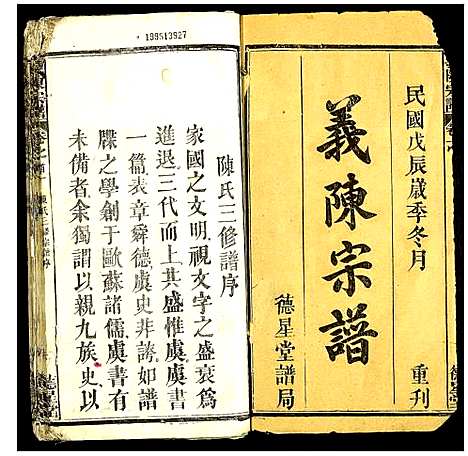 民國戊辰歲季冬月
義陳宗譜
德星堂譜局
重刊
199513927
陳氏三修譜序
家國之文明視文字之盛衰爲
進退三代而上其盛惟虞虞書
一篇表章舜德虞史非謗如譜
牒之學創于歐蘇諸儒虞書有
未備者余獨謂以親九族史以